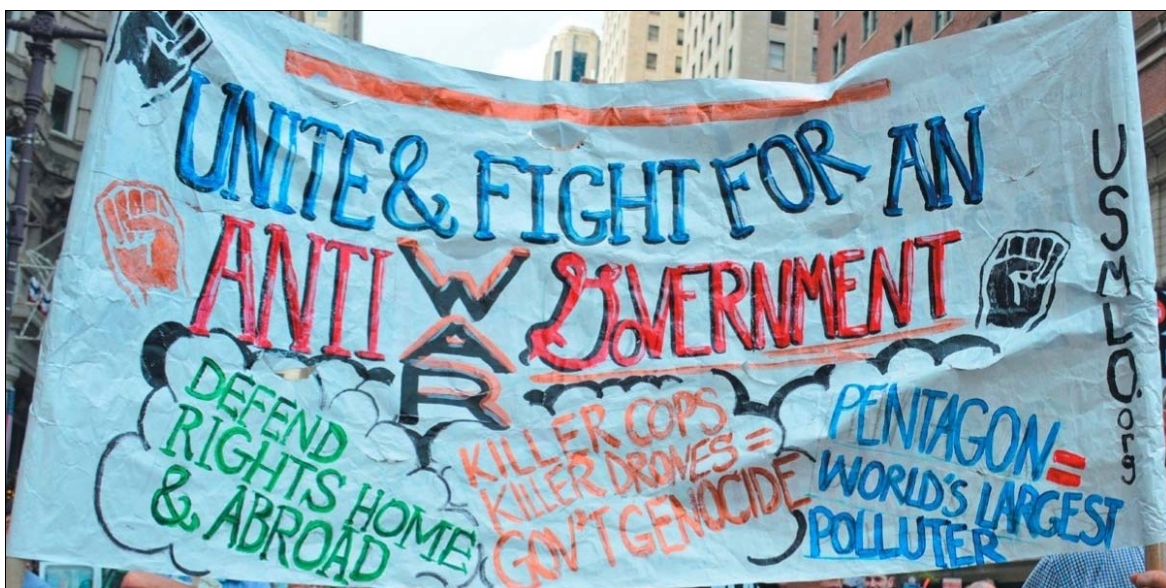 UNITE & FIGHT FOR AN
ANTI WAR GOVERNMENT
DEFEND
RIGHTS HOME
& ABROAD
KILLER COPS
KILLER DRONES =
GOV'T GENOCIDE
PENTAGON =
WORLD'S LARGEST
POLLUTER
USMLO.org